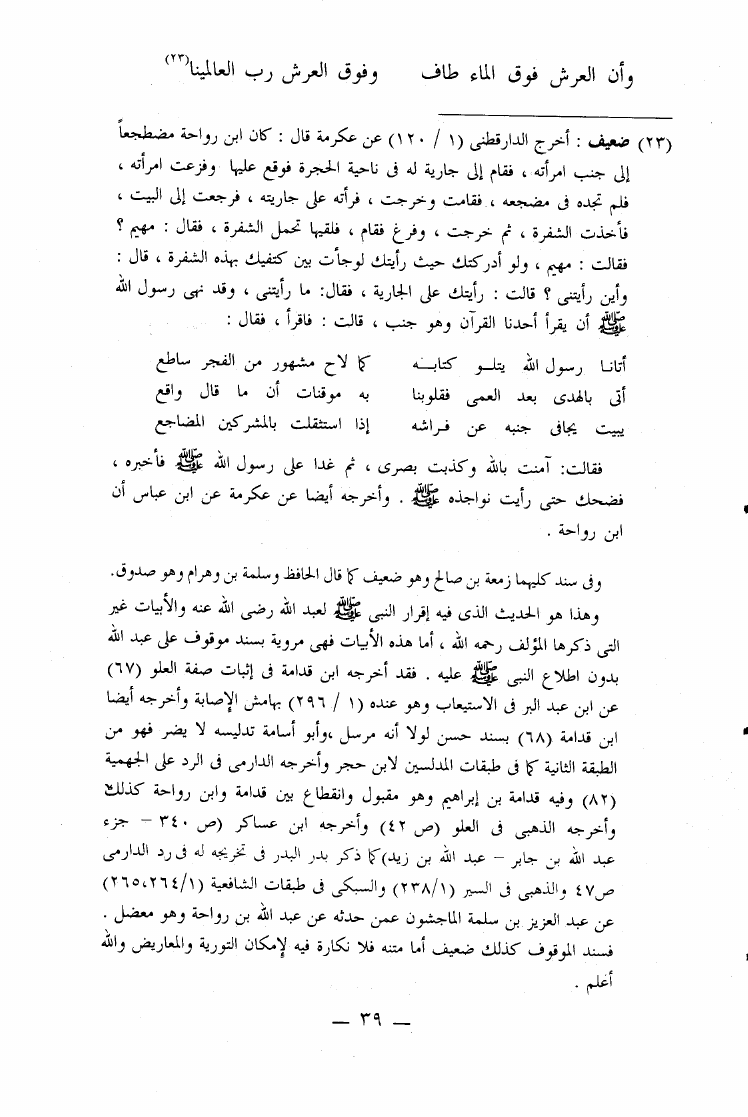 وأن العرش فوق الماء طاف وفوق العرش رب العالمينا(٢٣)
(٢٣) ضعيف : أخرج الدارقطنى (١ / ١٢٠) عن عكرمة قال : كان ابن رواحة مضطجعاً
إلى جنب امرأته ، فقام إلى جارية له فى ناحية الحجرة فوقع عليها وفزعت امرأته ،
فلم تجده فى مضجعه ، فقامت وخرجت ، فرأته على جاريته ، فرجعت إلى البيت ،
فأخذت الشفرة ، ثم خرجت ، وفرغ فقام ، فلقيها تحمل الشفرة ، فقال : مهيم ؟
فقالت : مهيم ، ولو أدركتك حيث رأيتك لوجأت بين كتفيك بهذه الشفرة ، قال :
وأين رأيتنى ؟ قالت : رأيتك على الجارية ، فقال: ما رأيتنى ، وقد نهى رسول الله
ﷺ أن يقرأ أحدنا القرآن وهو جنب ، قالت : فاقرأ ، فقال :
أتانا رسول الله يتلو كتابه كما لاح مشهور من الفجر ساطع
أتى بالهدى بعد العمى فقلوبنا به موقنات أن ما قال واقع
يبيت يجافى جنبه عن فراشه إذا استثقلت بالمشركين المضاجع
فقالت: آمنت بالله وكذبت بصرى ، ثم غدا على رسول الله ﷺ فأخبره ،
فضحك حتى رأيت نواجذه ﷺ . وأخرجه أيضا عن عكرمة عن ابن عباس أن
ابن رواحة .
وفى سند كليهما زمعة بن صالح وهو ضعيف كما قال الحافظ وسلمة بن وهرام وهو صدوق.
وهذا هو الحديث الذى فيه إقرار النبى ﷺ لعبد الله رضى الله عنه والأبيات غير
التى ذكرها المؤلف رحمه الله ، أما هذه الأبيات فهى مروية بسند موقوف على عبد الله
بدون اطلاع النبى ﷺ عليه . فقد أخرجه ابن قدامة فى إثبات صفة العلو (٦٧)
عن ابن عبد البر فى الاستيعاب وهو عنده (١ / ٢٩٦) بهامش الإصابة وأخرجه أيضا
ابن قدامة (٦٨) بسند حسن لولا أنه مرسل ،وأبو أسامة تدليسه لا يضر فهو من
الطبقة الثانية كما فى طبقات المدلسين لابن حجر وأخرجه الدارمى فى الرد على الجهمية
(٨٢) وفيه قدامة بن إبراهيم وهو مقبول وانقطاع بين قدامة وابن رواحة كذلك
وأخرجه الذهبى فى العلو (ص ٤٢) وأخرجه ابن عساكر (ص ٣٤٠ – جزء
عبد الله بن جابر – عبد الله بن زيد)كما ذكر بدر البدر فى تخريجه له فى رد الدارمى
ص٤٧ والذهبى فى السير (٢٣٨/١) والسبكى فى طبقات الشافعية (٢٦٥،٢٦٤/١)
عن عبد العزيز بن سلمة الماجشون عمن حدثه عن عبد الله بن رواحة وهو معضل .
فسند الموقوف كذلك ضعيف أما متنه فلا نكارة فيه لإمكان التورية والمعاريض والله
أعلم .
— ٣٩ —